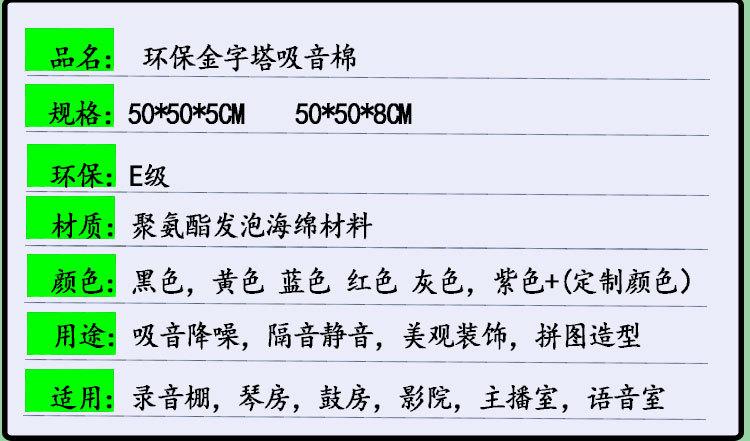 品名： 环保金字塔吸音棉
规格：50*50*5CM 50*50*8CM
环保：E级
材质：聚氨酯发泡海绵材料
颜色：黑色，黄色 蓝色 红色 灰色，紫色+(定制颜色)
用途：吸音降噪，隔音静音，美观装饰，拼图造型
适用：录音棚，琴房，鼓房，影院，主播室，语音室